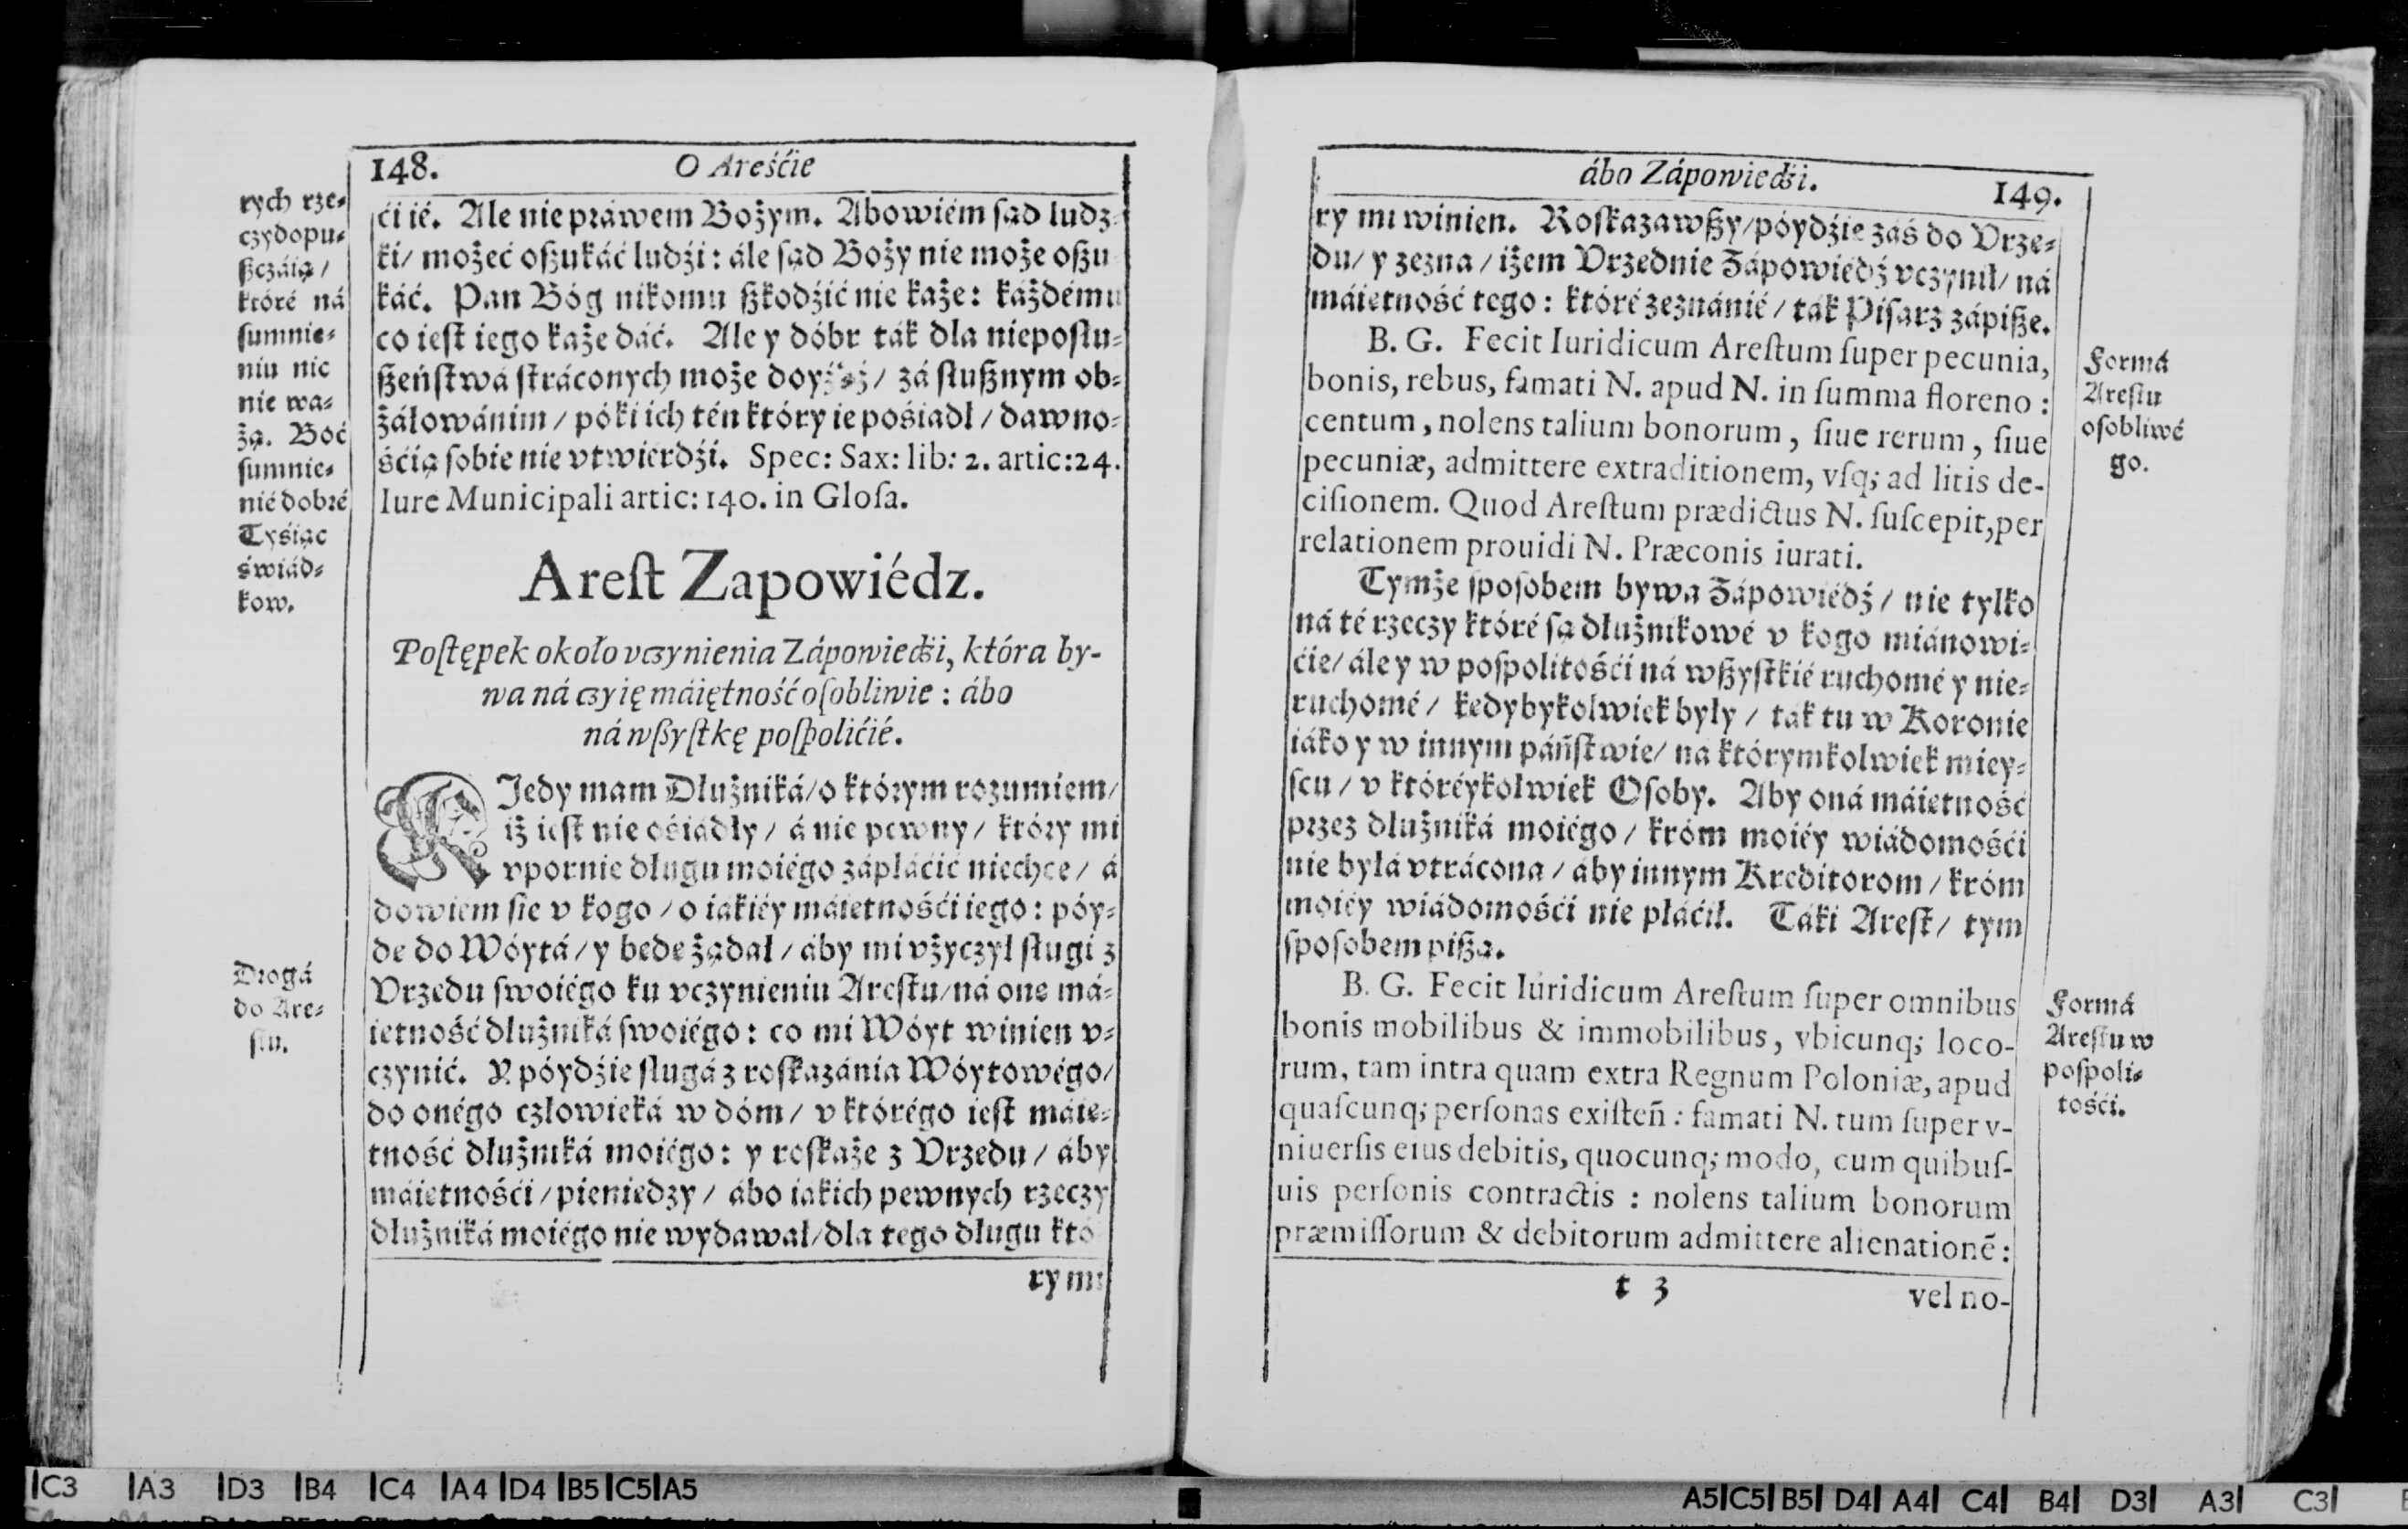 148. O Areśćie
rych rze-
czy dopu-
ßczáią /
któré ná
sumnie-
niu nic
nie wa-
żą. Boć
sumnie-
nié dobré
Tyśiąc
świád-
kow.
ći ié. Ale nie práwem Bożym. Abowiém ſąd ludz-
ki / możeć oßukáć ludźi: ále ſąd Boży nie może oßu
káć. Pan Bóg nikomu ßkodźić nie każe: káżdému
co ieſt iego każe dáć. Ale y dóbr ták dla niepoſłu-
ßeńſtwá ſtráconych może / zá ſłußnym ob-
żáłowánim / póki ich tén który ie pośiadł / dawno-
śćią ſobie nie vtwiérdźi. Spec: Sax: lib: 2. artic: 24.
Iure Municipali artic: 140. in Gloſa.
Areſt Zapowiédz.
Poſtępek około vczynienia Zápowiedźi, która by-
wa ná czyię máiętność oſobliwie : ábo
ná wßyſtkę poſpolićié.
KJedy mam Dłużniká / o którym rozumiem /
iż ieſt nie ośiádły / á nie pewny / który mi
vpornie długu moiégo zápłáćić niechce / á
dowiem ſie v kogo / o iakiéy máietnośći iego: póy-
de do Wóytá / y bede żądał / áby mi vżyczył ſługi z
Vrzedu ſwoiégo ku vczynieniu Areſtu / ná one má-
ietność dłużniká ſwoiégo: co mi Wóyt winien v-
czynić. Y póydźie ſługá z roſkazánia Wóytowégo /
do onégo człowieká w dóm / v którégo ieſt máie-
tność dłużniká moiégo: y roſkaże z Vrzedu / áby
máietnośći / pieniedzy / ábo iakich pewnych rzeczy
dłużniká moiégo nie wydawał / dla tego długu któ
Drogá
do Are-
ſtu.
ry mi
ábo Zápowiedźi. 149.
ry mi winien. Roſkazawßy / póydźie záś do Vrze-
du / y zezna / iżem Vrzednie Zápowiédź vczynił / ná
máietność tego: któré zeznánié / ták Piſarz zápiße.
B. G. Fecit Iuridicum Areſtum ſuper pecunia,
bonis, rebus, famati N. apud N. in ſumma floreno :
centum, nolens talium bonorum, ſiue rerum, ſiue
pecuniæ, admittere extraditionem, vſq; ad litis de-
ciſionem. Quod Areſtum prædictus N. ſuſcepit, per
relationem prouidi N. Præconis iurati.
Formá
Areſtu
oſobliwé
go.
Tymże ſpoſobem bywa Zápowiédź / nie tylko
ná té rzeczy któré ſą dłużnikowé v kogo miánowi-
ćie / ále y w poſpolitośći ná wßyſtkié ruchomé y nie-
ruchomé / kedybykolwiek były / ták tu w Koronie
iáko y w innym páńſtwie / na którymkolwiek miey-
ſcu / v któréykolwiek Oſoby. Aby oná máietność
przez dłużniká moiégo / króm moiéy wiádomośći
nie byłá vtrácona / áby innym Kreditorom / króm
moiéy wiádomośći nie płáćił. Táki Areſt / tym
ſpoſobem pißą.
B. G. Fecit Iuridicum Areſtum ſuper omnibus
bonis mobilibus & immobilibus, vbicunq; loco-
rum, tam intra quam extra Regnum Poloniæ, apud
quaſcunq; perſonas exiſteñ : famati N. tum ſuper v-
niuerſis eius debitis, quocunq; modo, cum quibuſ-
uis perſonis contractis : nolens talium bonorum
præmiſſorum & debitorum admittere alienationẽ :
Formá
Areſtu w
poſpoli-
tośći.
t 3 vel no-
C3 A3 D3 B4 C4 A4 D4 B5 C5 A5
A5 C5 B5 D4 A4 C4 B4 D3 A3 C3